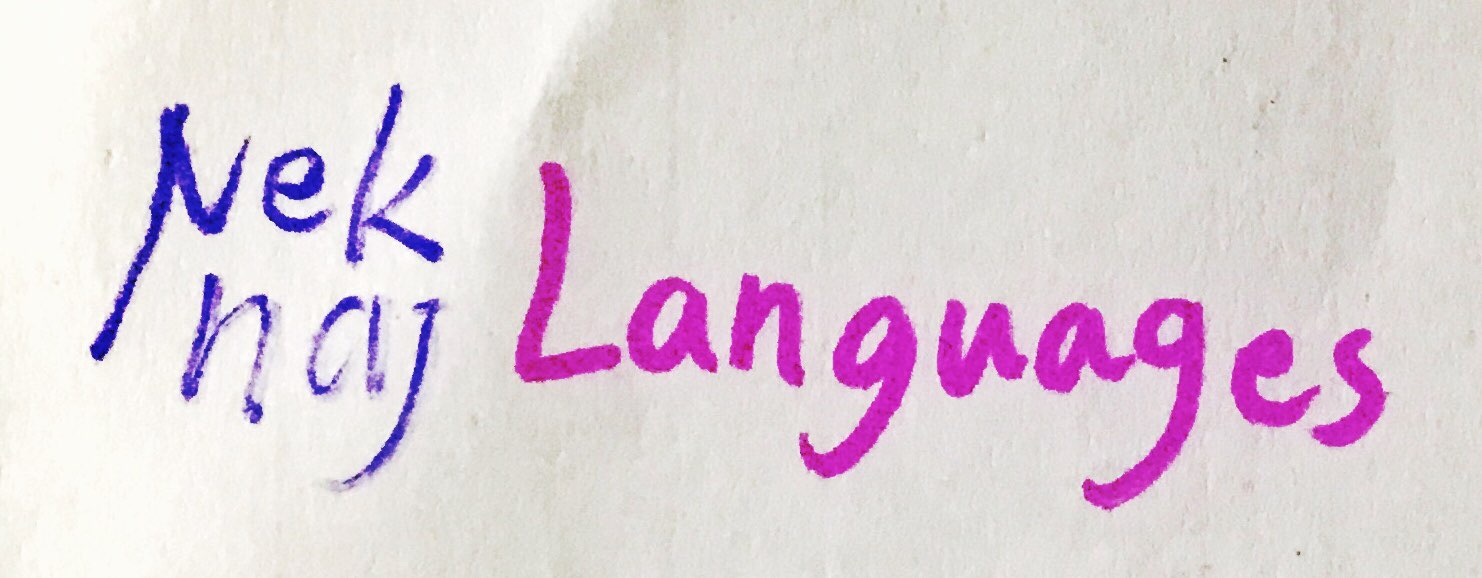 Nek
naj
Languages